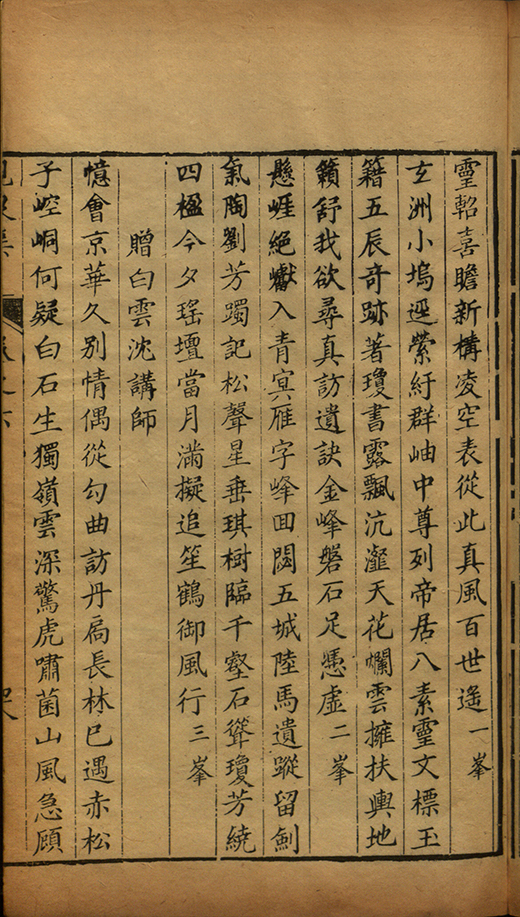 霊韜喜瞻新構凌空表從此真風百世遙一峯
玄洲小塢逥縈紆群岫中尊列帝居八素霊文標玉
籍五辰竒跡著瓊書露飄沆瀣天花爛雲擁扶輿地
籟舒我欲尋真訪遺訣金峰磐石足慿虛二峯
懸崕絕巘入青㝠雁字峰囬闢五城陸馬遺蹤留劍
氣陶劉芳躅記松聲星垂琪樹臨千壑石聳瓊芳繞
四楹今夕瑤壇當月滿擬追笙鶴御風行三峯
贈白雲沈講師
憶會京華久別情偶從勾曲訪丹扃長林巳遇赤松
子崆峒何疑白石生獨嶺雲深驚虎嘯菌山風急頋
卷之六